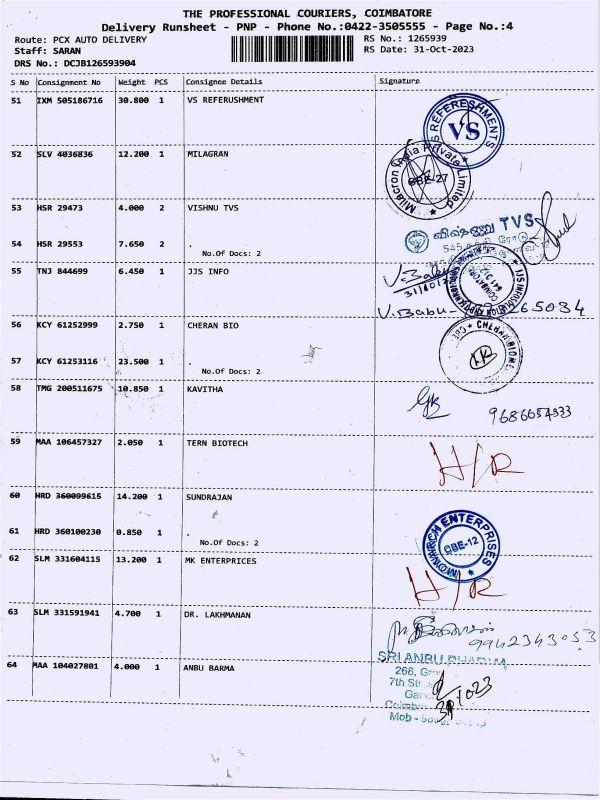 THE PROFESSIONAL COURIERS, COIMBATORE
Delivery Runsheet - PNP - Phone No.:0422-3505555 - Page No.:4
Route: PCX AUTO DELIVERY
RS No.: 1265939
Staff: SARAN
RS Date: 31-Oct-2023
DRS No.: DCJB126593904
S No Consignment No Weight PCS Consignee Details Signature
51 IXM 505186716 30.800 1 VS REFERUSHMENT
VS REFERESHMENTS
VS
52 SLV 4036836 12.200 1 MILAGRAN
Milacron India Private Limited
CBE-27
53 HSR 29473 4.000 2 VISHNU TVS
விஷ்ணு TVS
54 HSR 29553 7.650 2 .
No.Of Docs: 2
55 TNJ 844699 6.450 1 JJS INFO
V.Babu
V.Babu- 265034
56 KCY 61252999 2.750 1 CHERAN BIO
57 KCY 61253116 23.500 1 .
No.Of Docs: 2
58 TMG 200511675 10.850 1 KAVITHA
59 MAA 106457327 2.050 1 TERN BIOTECH
H/R
60 HRD 360099615 14.200 1 SUNDRAJAN
61 HRD 360100230 0.850 1 .
No.Of Docs: 2
ENTERPRISES
CBE-12
62 SLM 331604115 13.200 1 MK ENTERPRICES
H/R
63 SLM 331591941 4.700 1 DR. LAKHMANAN
9942343053
SRI ANBU PHARMA
64 MAA 104027801 4.000 1 ANBU BARMA
266,
7th
Mob -